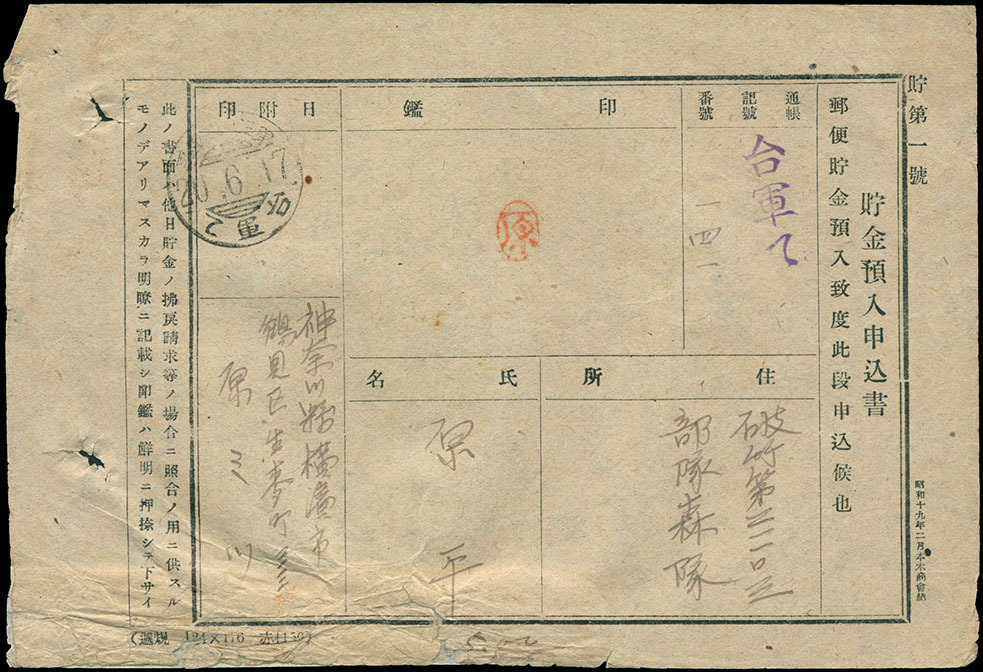 貯第一號
貯金預入申込書
郵便貯金預入致度此段申込候也
昭和十九年二月
通帳
記號
番號
台軍
一四一
印鑑
原
日附印
20.6.17
台軍
住所
第
部隊森隊
氏名
原 平
神奈川縣橫濱市
鶴見区生麦町
原ミツ
此ノ書面ハ他日貯金ノ拂戾請求等ノ場合ニ照合ノ用ニ供スル
モノデアリマスカラ明瞭ニ記載シ印鑑ハ鮮明ニ押捺シテ下サイ
124×176